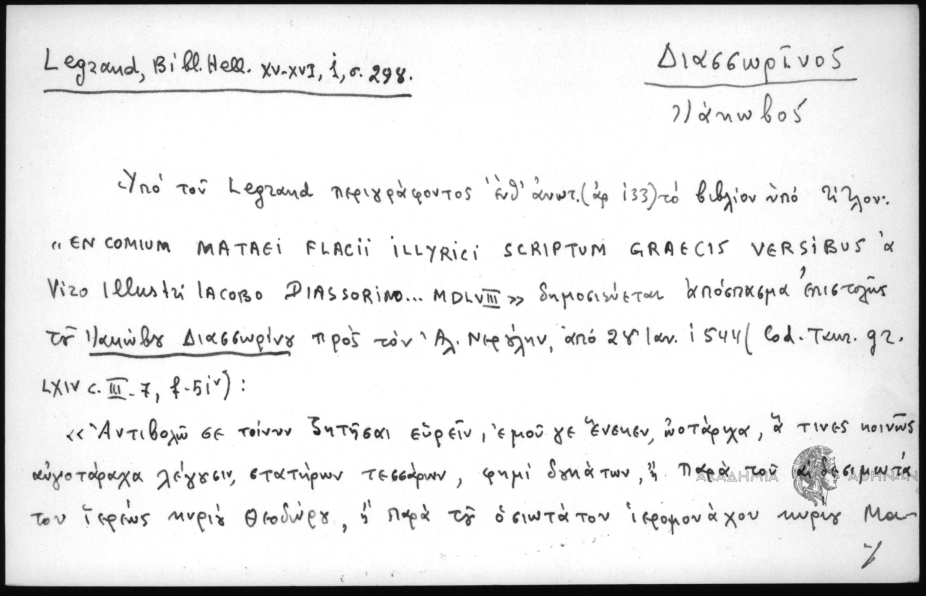 Legrand, Bibl. Hell. XV-XVI, 1, σ. 298.
Διασσωρῖνος
Ἰάκωβος
Ὑπό τοῦ Legrand περιγράφοντος ἐνθ' ἀνωτ. (ἀρ 133) τό βιβλίον ὑπό τίτλον:
«ENCOMIUM MATAEI FLACII ILLYRICI SCRIPTUM GRAECIS VERSIBUS à
Viro Illustri IACOBO DIASSORINO... MDLVIII» δημοσιεύεται ἀπόσπασμα ἐπιστολῆς
τοῦ Ἰακώβου Διασσωρίνου πρὸς τὸν Ἀλ. Νερούλην, ἀπό 28 Ἰαν. 1544 (Cod. Taur. gr.
LXIV c. III. 7, f. 51ᵛ):
«Ἀντιβολῶ σε τοίνυν ζητῆσαι εὑρεῖν, ἐμοῦ γε ἕνεκεν, ὠοτάριχα, ἅ τινες κοινῶς
αὐγοτάραχα λέγουσιν, στατήρων τεσσάρων, φημί δουκάτων, ἤ παρά τοῦ αἰδεσιμωτά
του ἱερέως κυρίου Θεοδώρου, ἤ παρά τοῦ ὁσιωτάτου ἱερομονάχου κυρίου Μα-
%
ΑΚΑΔΗΜΙΑ ΑΘΗΝΩΝ